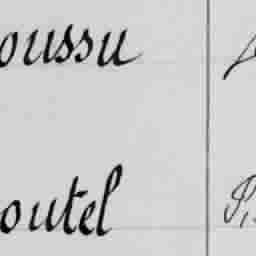 oussu
outel